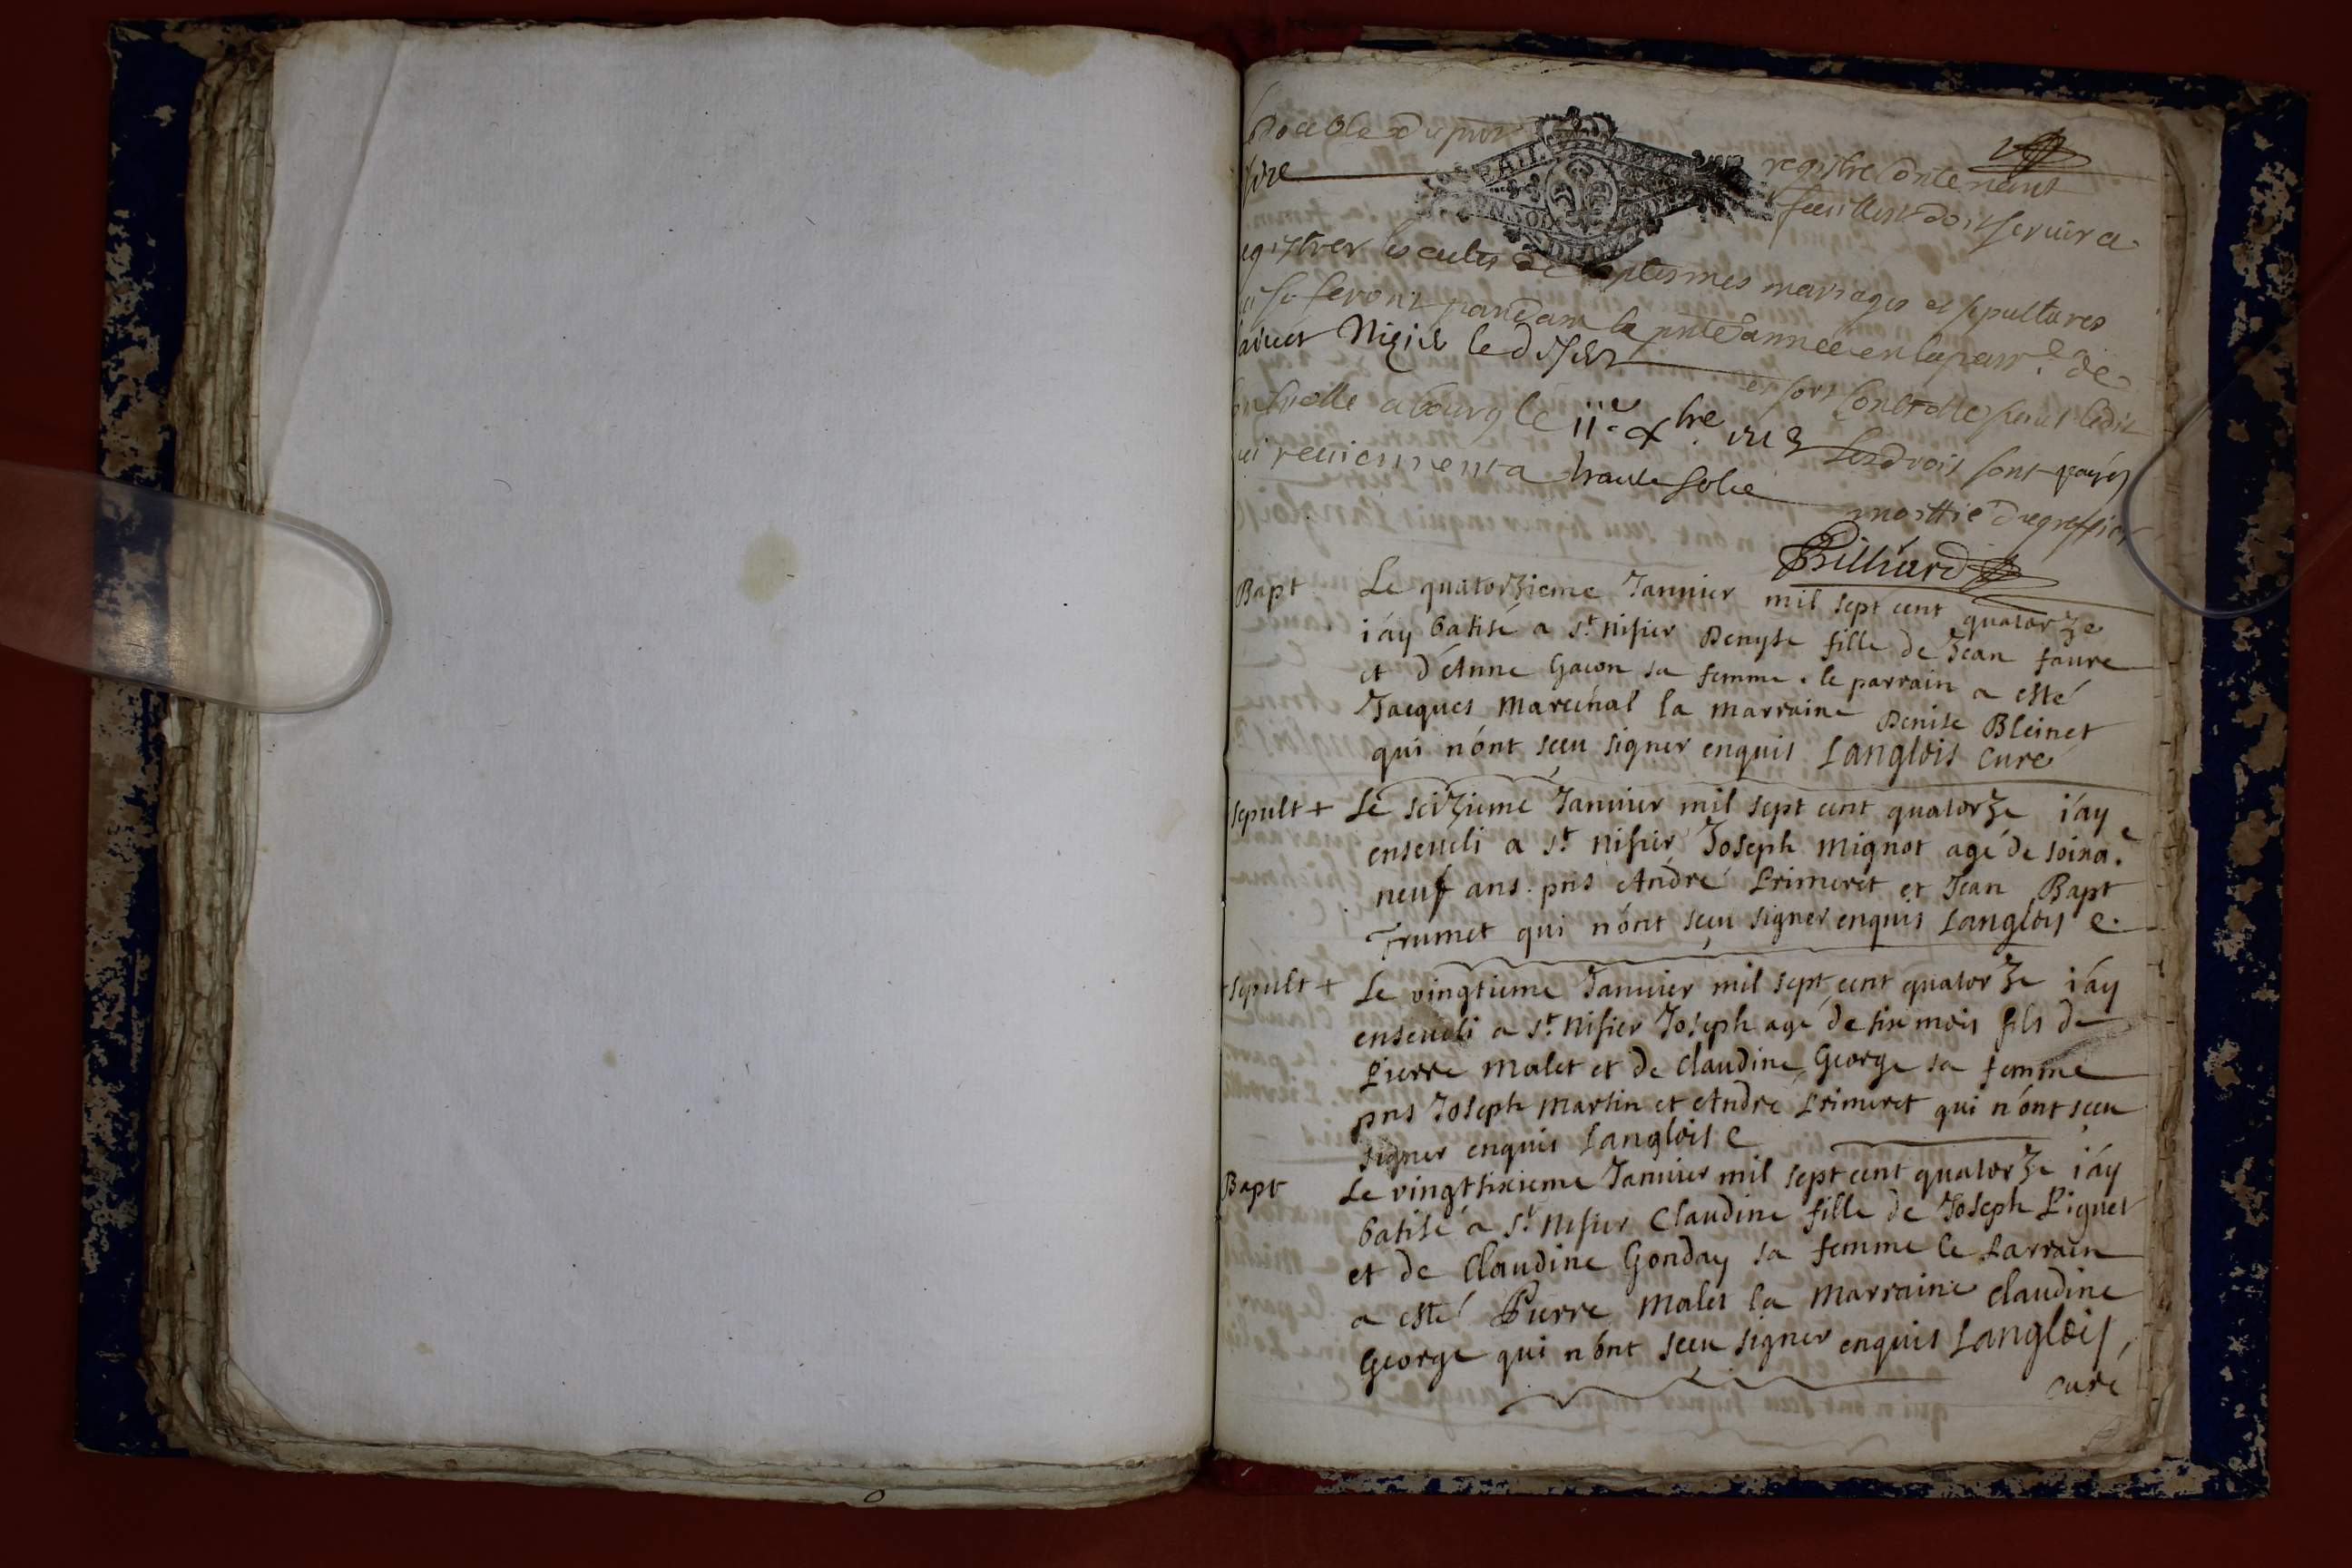 Double du pnt registre Contenant
dire feuillets doit servir a
egistrer les actes de baptesmes mariages et sepultures
i se feront pandant la pnte année en la parr.e de
saint Nizier le desert
et sera Controllé sera ledit
ntrolle a bourg le 11.e xbre 1713 Les droits sont payés
ui reviennent a trente sols
moittié du greffier
Billiard
Bapt Le quatorzieme Januier mil sept cent quatorze
i'ay batisé a St Nisier Denyse fille de Jean faure
et d'Anne Gacon sa femme. le parrain a esté
Jacques Marechal la marraine Denise Bleinet
qui n'ont sçeu signer enquis Langlois Curé
sepult + Le seizieme Januier mil sept cent quatorze i'ay
enseueli a St Nisier Joseph Mignot agé de soixa.e
neuf ans. pns André Primeret et Jean Bapt
Trumet qui n'ont sçeu signer enquis Langlois C.
sepult + Le vingtieme Januier mil sept cent quatorze i'ay
enseueli a St Nisier Joseph agé de six mois fils de
Pierre Malet et de Claudine George sa femme
pns Joseph Martin et André Primeret qui n'ont sçeu
signer enquis Langlois C
Bapt Le vingtsixieme Januier mil sept cent quatorze i'ay
batisé a St Nisier Claudine fille de Joseph Piguet
et de Claudine Gonday sa femme le Parrain
a esté Pierre Malet la Marraine Claudine
George qui n'ont sçeu signer enquis Langlois,
curé